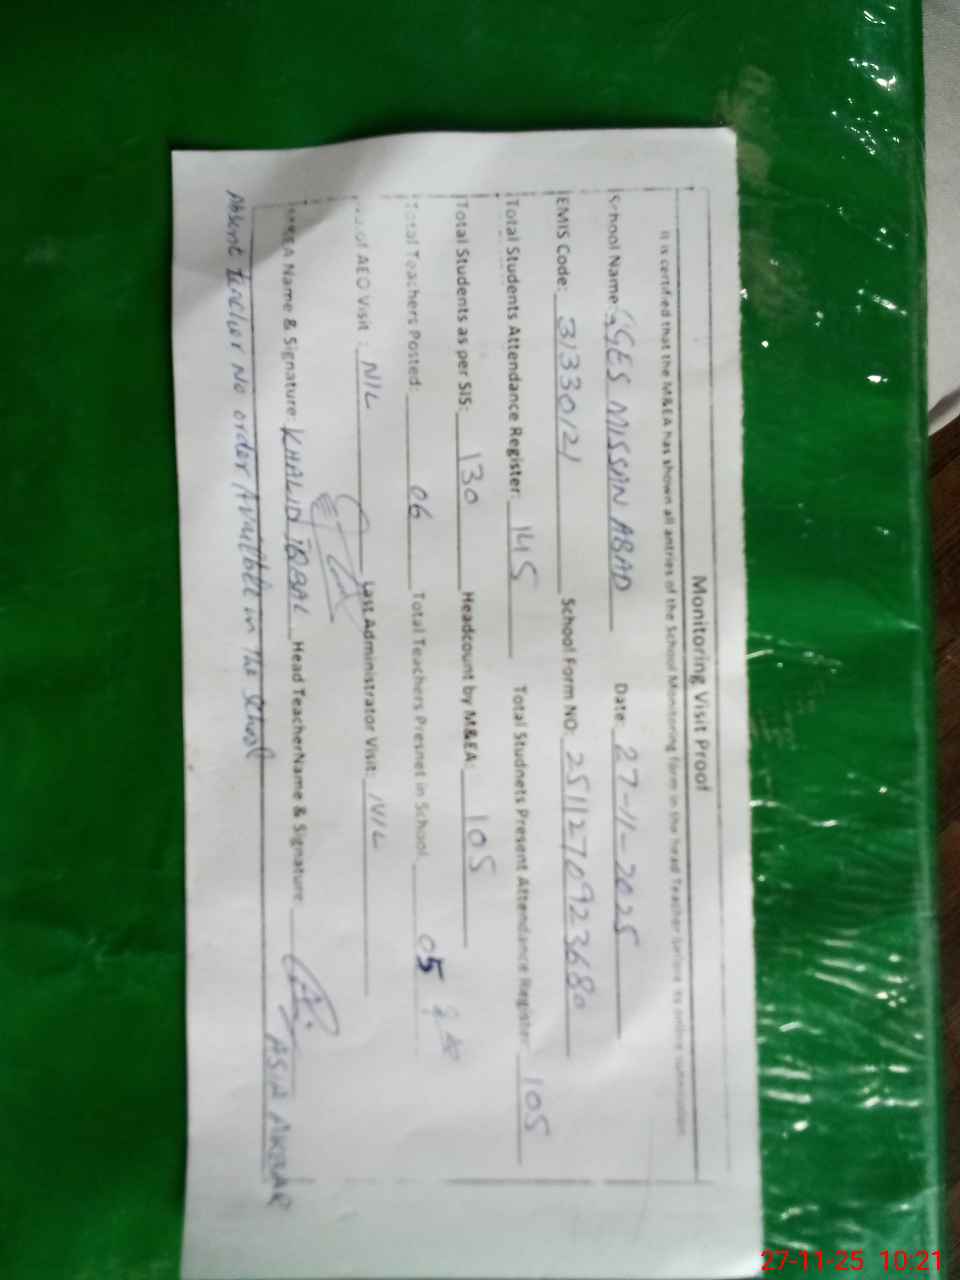 Monitoring Visit Proof
It is certified that the M&EA has shown all antries of the School Monitoring form in the head Teacher before its online submission
School Name: GGES MISSAN ABAD Date: 27-11-2025
EMIS Code: 31330121 School Form NO: 2511270923680
Total Students Attendance Register: 145 Total Studnets Present Attendance Register: 105
Total Students as per SIS: 130 Headcount by M&EA: 105
Total Teachers Posted: 06 Total Teachers Presnet in School 05
of AEO Visit : NIL Last Administrator Visit: NIL
Name & Signature: KHALID IQBAL Head TeacherName & Signature ASIA AKBAR
Absent teacher No order Availble in The School
27-11-25 10:21